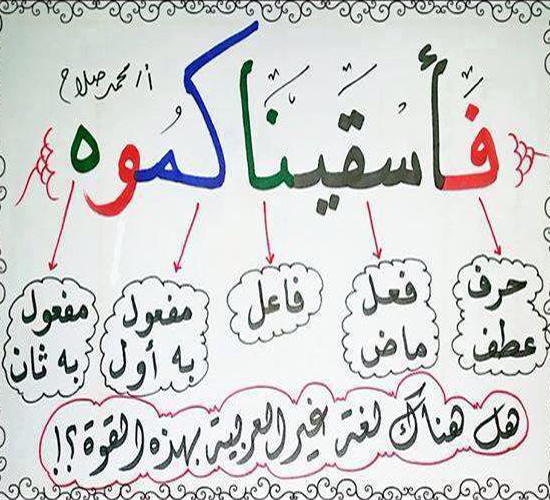 أ/محمد صلاح
فأسقيناكموه
حرف عطف
فعل ماض
فاعل
مفعول به أول
مفعول به ثان
هل هناك لغة غير العربية بهذه القوة؟!